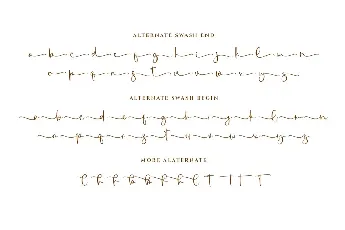 ALTERNATE SWASH END
a b c d e f g h i j k l m n
o p q r s t u v w x y z
ALTERNATE SWASH BEGIN
a b c d e f g h i j k l m n
o p q r s t u v w x y z
MORE ALATERNATE